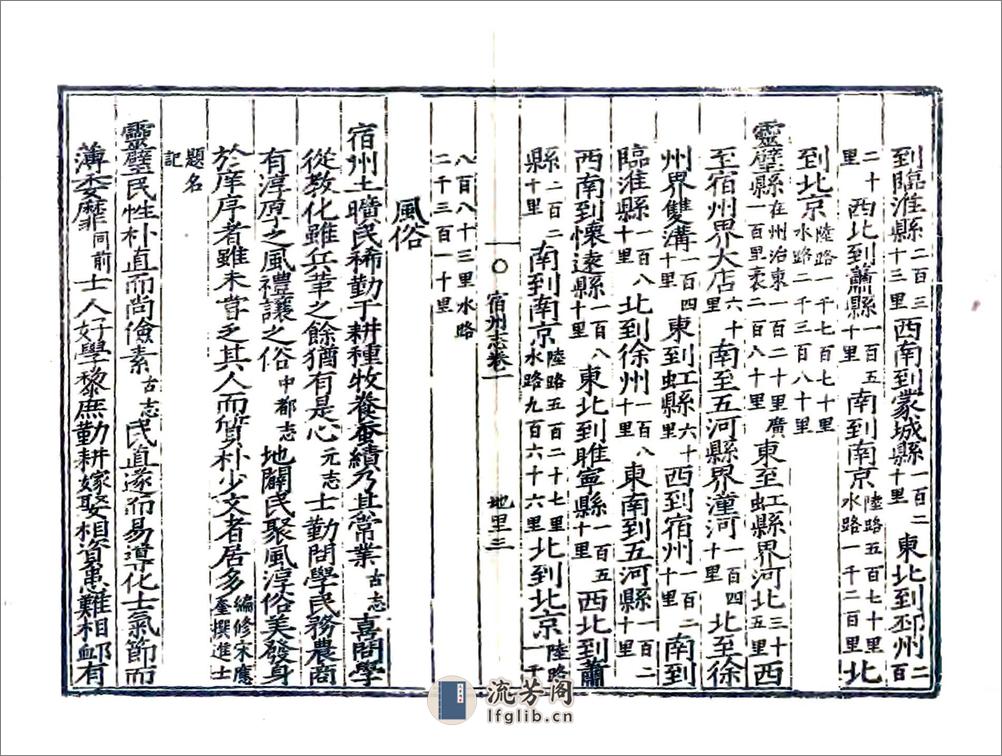 到臨淮縣二百三十三里西南到蒙城縣一百二十里東北到邳州二百
二十里西北到蕭縣一百五十里南到南京陸路五百七十里水路一千二百里北
到北京陸路一千七百七十里水路二千三百八十里
靈璧縣在州治東一百二十里廣一百里袤二百八十里東至虹縣界河北三十五里西
至宿州界大店六十里南至五河縣界潼河一百四十里北至徐
州界雙溝一百四十里東到虹縣六十里西到宿州一百二十里南到
臨淮縣一百八十里北到徐州一百八十里東南到五河縣一百二十里
西南到懷遠縣一百八十里東北到睢寧縣一百五十里西北到蕭
縣二百二十里南到南京陸路五百二十七里水路九百六十六里北到北京陸路一千
八百八十三里水路二千三百一十里
宿州志卷一
地里三
風俗
宿州土曠民稀勤于耕種牧養蚕績乃其常業古志喜問學
從教化雖兵革之餘猶有是心元志士勤問學民務農商
有淳厚之風禮讓之俗中都志地闢民聚風淳俗美發身
於庠序者雖未嘗乏其人而質朴少文者居多編修宋應奎撰進士
題名記
靈璧民性朴直而尚儉素古志民直遂而易導化士氣節而
薄委靡同前士人好學黎庶勤耕嫁娶相資患難相卹有
流芳阁
lfglib.cn